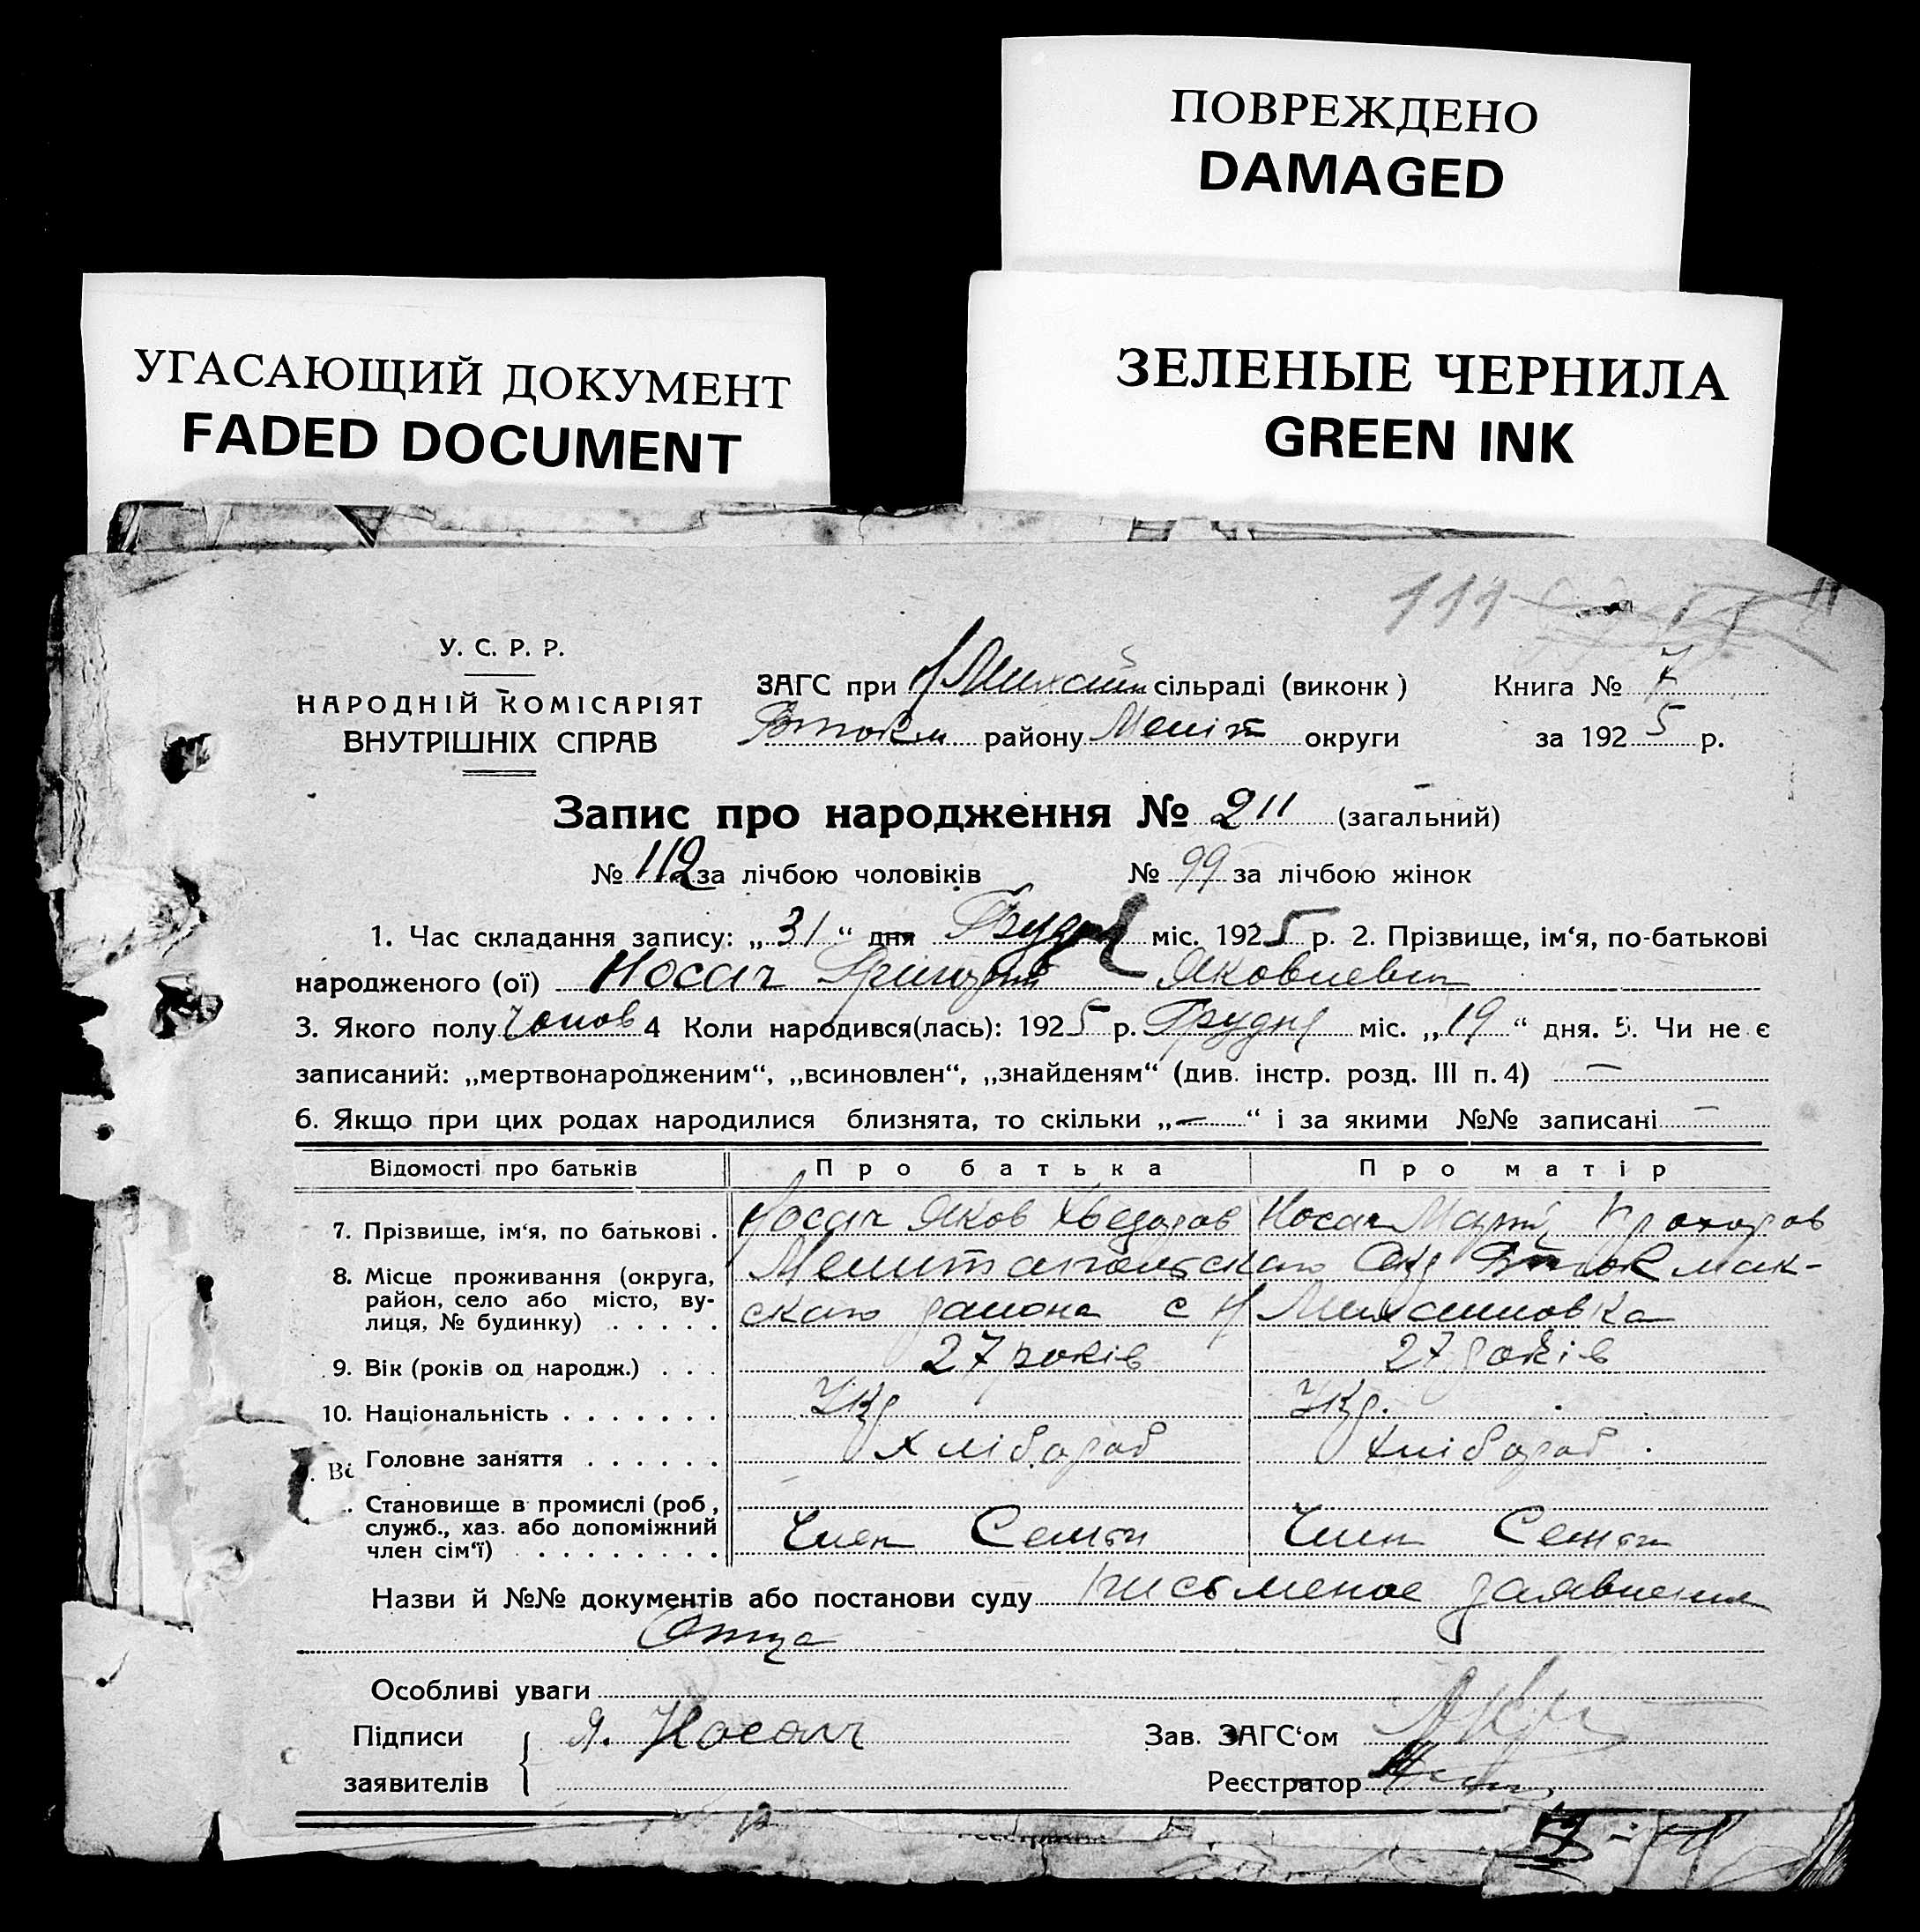 ПОВРЕЖДЕНО
DAMAGED
УГАСАЮЩИЙ ДОКУМЕНТ
FADED DOCUMENT
ЗЕЛЕНЫЕ ЧЕРНИЛА
GREEN INK
111
У. С. Р. Р.
НАРОДНІЙ КОМІСАРІЯТ
ВНУТРІШНІХ СПРАВ
ЗАГС при Н Михайл сільраді (виконк) Книга № 7
району Меліт округи за 1925 р.
Запис про народження № 211 (загальний)
№ 112 за лічбою чоловіків № 99 за лічбою жінок
1. Час складання запису: „31“ дня Грудня міс. 1925 р. 2. Прізвище, ім‘я, по-батькові
народженого (ої) Носач Григорій Яковлевич
3. Якого полу чолов 4 Коли народився(лась): 1925 р. Грудня міс. „19“ дня. 5. Чи не є
записаний: „мертвонародженим“, „всиновлен“, „знайденям“ (див. інстр. розд. III п. 4) —
6. Якщо при цих родах народилися близнята, то скільки „—“ і за якими №№ записані —
Відомості про батьків Про батька Про матір
7. Прізвище, ім‘я, по батькові . Носач Яков Хведоров Носач Марія Прохоров
8. Місце проживання (округа, район, село або місто, вулиця, № будинку) . . . . . Мелитопольскаго Окр Втокмак-
скаго района с Н Михайловка
9. Вік (років од народж.) . . . 27 років 27 років
10. Національність . . . . . . . Укр Укр.
Головне заняття . . . . . . хлібороб хлібороб
Становище в промислі (роб,
служб., хаз. або допоміжний
член сім‘ї) . . . . . . . . Член Семьи Член Семьи
Назви й №№ документів або постанови суду письменое заявления
Отца
Особливі уваги
Підписи Я. Носач Зав. ЗАГС‘ом
заявителів Реєстратор